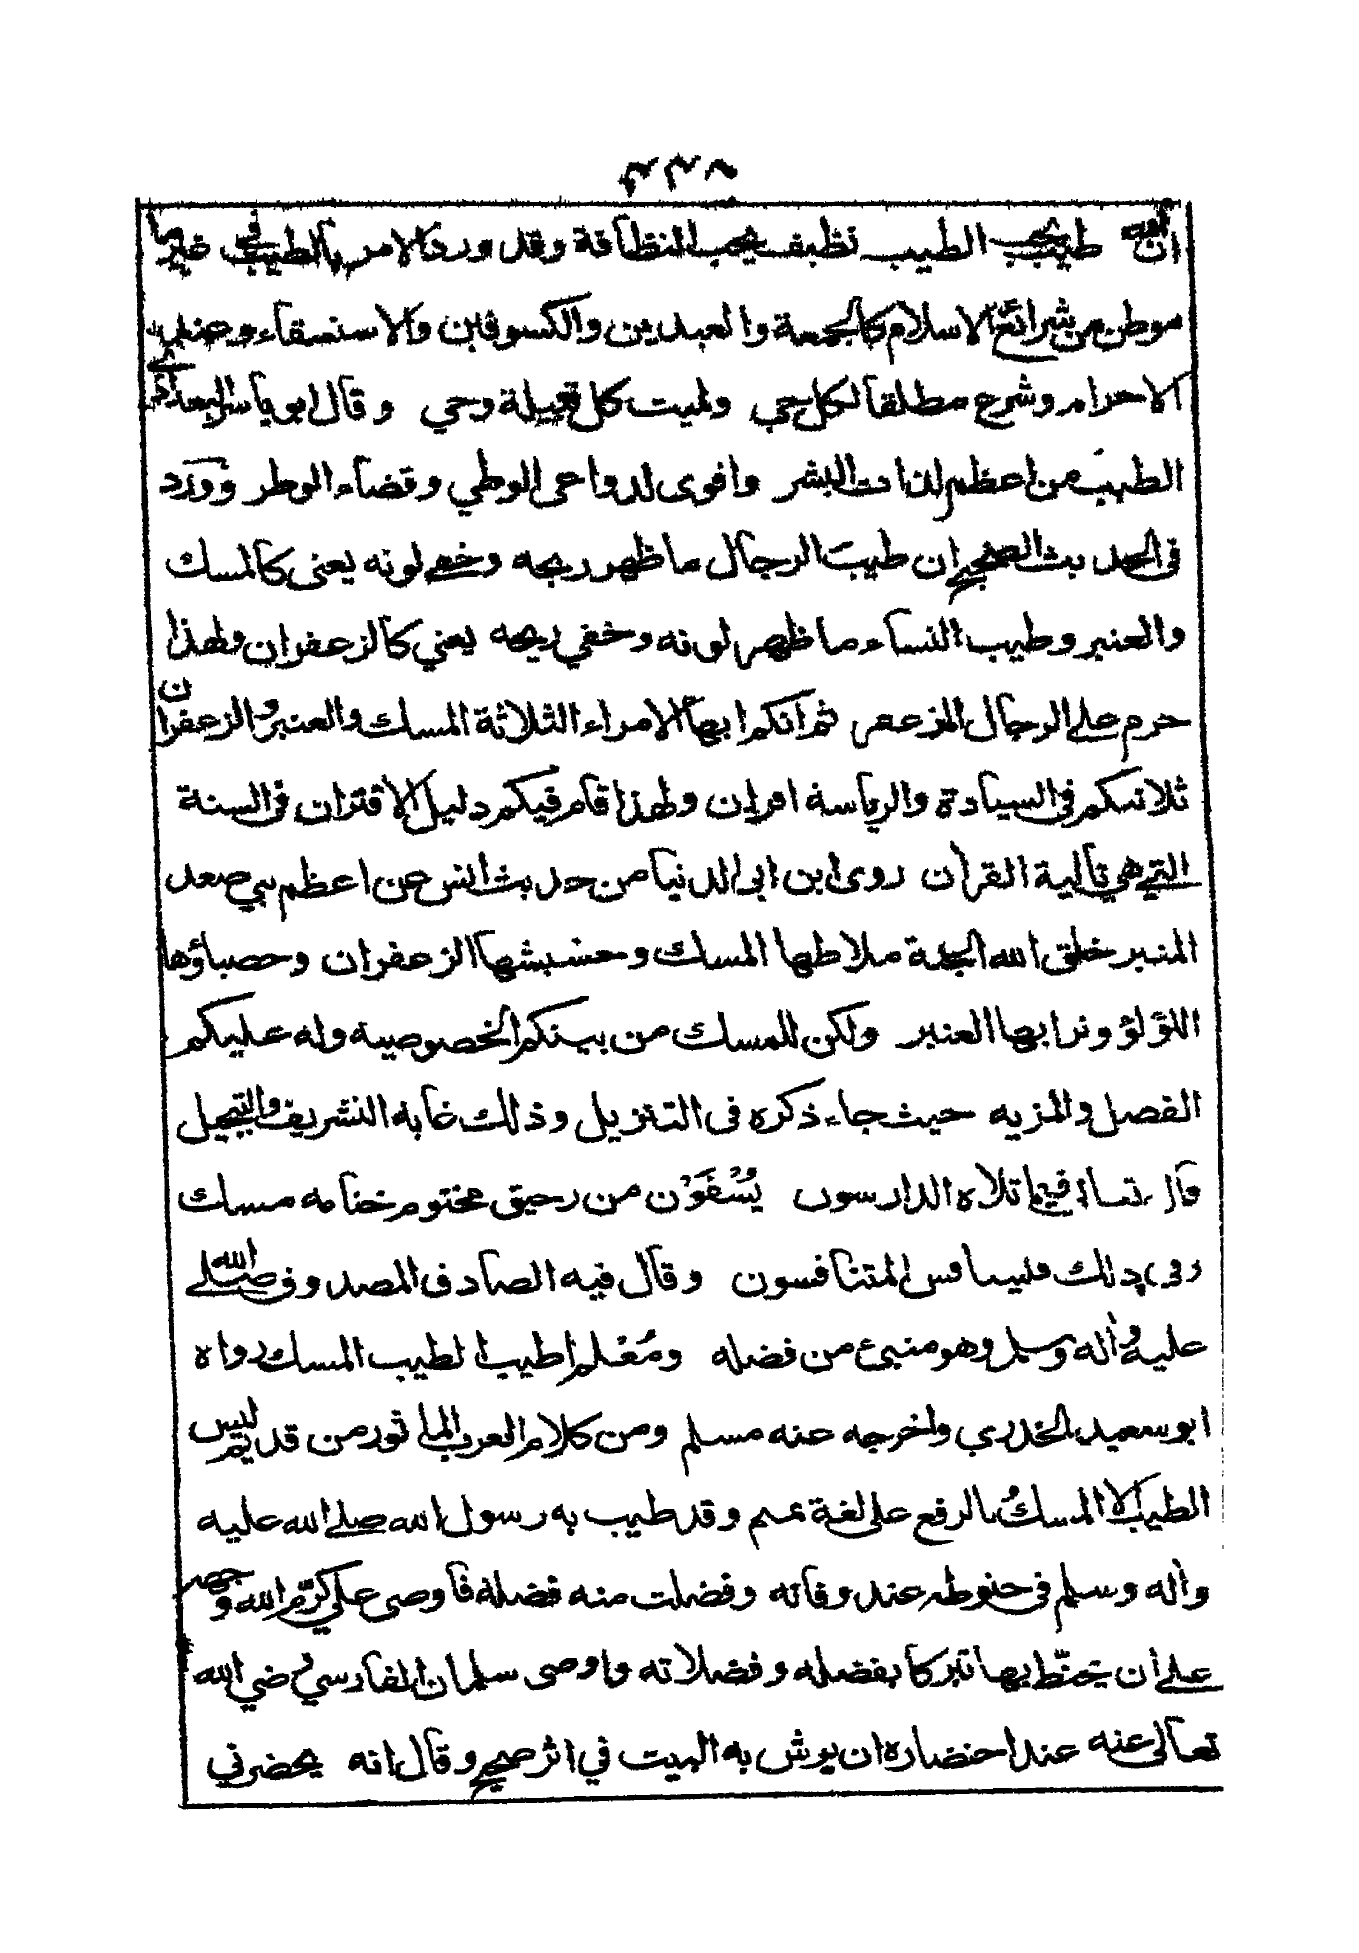 ان الله طيب يحب الطيب نظيف يحب النظافة وقد ورد الامر بالطيب في غير ما
موطن من شرائع الاسلام كالجمعة والعيدين والكسوفين والاستسقاء وعند
الاحرام وشرع مطلقا لكل حي ولميت كل قبيلة وحي وقال ابو ياسر البغدادي
الطيب من اعظم لذات البشر واقوى لدواعي الوطي وقضاء الوطر وورد
في الحديث الصحيح ان طيب الرجال ما ظهر ريحه وخفي لونه يعني كالمسك
والعنبر وطيب النساء ما ظهر لونه وخفي ريحه يعني كالزعفران ولهذا
حرم على الرجال المزعفر ثم انكم ايها الامراء الثلاثة المسك والعنبر والزعفران
ثلاثتكم في السيادة والرياسة اقران ولهذا قام فيكم دليل الاقتران في السنة
التي هي تالية القرآن روى ابن ابي الدنيا من حديث انس عن اعظم نبي صعد
المنبر خلق الله الجنة ملاطها المسك وحشيشها الزعفران وحصباؤها
اللؤلؤ وترابها العنبر ولكن للمسك من بينكم الخصوصية وله عليكم
الفضل والمزيه حيث جاء ذكره في التنزيل وذلك غاية التشريف والتبجيل
قال تعالى فيما تلاه الدارسون يُسْقَوْن من رحيق مختوم ختامه مسك
وفي ذلك فليتنافس المتنافسون وقال فيه الصادق المصدوق صلى الله
عليه وآله وسلم وهو منبئ من فضله ومُعْلم اطيب الطيب المسك رواه
ابو سعيد الخدري واخرجه عنه مسلم ومن كلام العرب الماثور من قديم ليس
الطيب الا المسكُ بالرفع على لغة تميم وقد طيب به رسول الله صلى الله عليه
وآله وسلم في حنوطه عند وفاته وفضلت منه فضلة فاوصى علي كرّم الله وجهه
على ان يحنّط بها تبركا بفضله وفضلاته واوصى سلمان الفارسي رضي الله
تعالى عنه عند احتضاره ان يرش به البيت في اثر صحيح وقال انه يحضرني